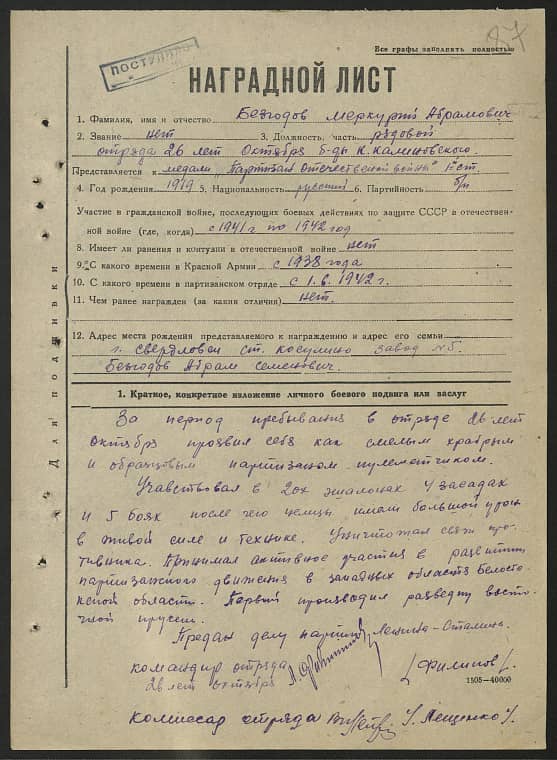 87
Все графы заполнять полностью
ПОСТУПИЛО
НАГРАДНОЙ ЛИСТ
1. Фамилия, имя и отчество Безгодов Меркурий Абрамович
2. Звание нет 3. Должность, часть рядовой
отряда 26 лет Октября б-ды К. Калиновского.
Представляется к медали "Партизан Отечественной войны" I ст.
4. Год рождения 1919 5. Национальность русский 6. Партийность б/п
Участие в гражданской войне, последующих боевых действиях по защите СССР в отечествен-
ной войне (где, когда) с 1941 г по 1942 год
8. Имеет ли ранения и контузии в отечественной войне нет
9. С какого времени в Красной Армии с 1938 года
10. С какого времени в партизанском отряде с 1.6. 1942 г.
11. Чем ранее награжден (за какия отличия) нет.
12. Адрес места рождения представляемого к награждению и адрес его семьи
г. Свердловск ст. Косулино завод №5.
Безгодов Абрам Семенович.
Для подшивки
1. Краткое, конкретное изложение личного боевого подвига или заслуг
За период пребывания в отряде 26 лет
Октября проявил себя как смелым храбрым
и образцовым партизаном пулеметчиком.
Учавствовал в 2ох эшалонах 4 засадах
и 5 боях после чего немцы имели большой урон
в живой силе и технике. Уничтожал связи про-
тивника. Принимал активное участия в развитии
партизанского движения в западных областя Белосто-
кской области. Первый производил разведку восто-
чной прусси.
Предан делу партии Ленина-Сталина.
командир отряда
26 лет октября /Филипов/.
1505—40000
Комиссар отряда /Лещенко/